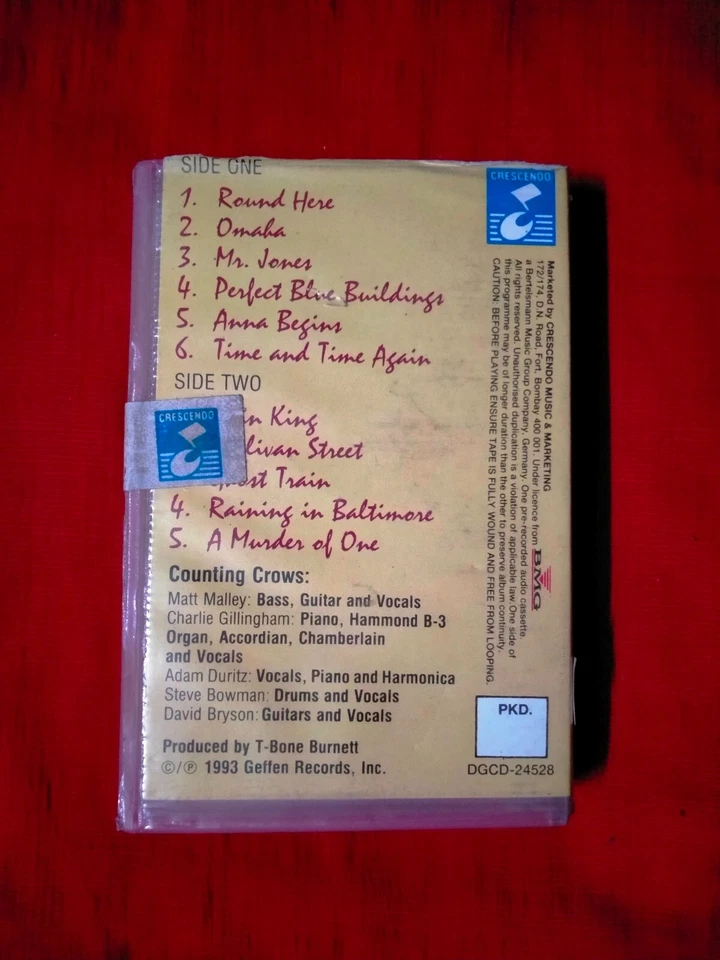 SIDE ONE
1. Round Here
2. Omaha
3. Mr. Jones
4. Perfect Blue Buildings
5. Anna Begins
6. Time and Time Again
SIDE TWO
in King
livan Street
ost Train
4. Raining in Baltimore
5. A Murder of One
Counting Crows:
Matt Malley: Bass, Guitar and Vocals
Charlie Gillingham: Piano, Hammond B-3
Organ, Accordian, Chamberlain
and Vocals
Adam Duritz: Vocals, Piano and Harmonica
Steve Bowman: Drums and Vocals
David Bryson: Guitars and Vocals
Produced by T-Bone Burnett
©/℗ 1993 Geffen Records, Inc.
CRESCENDO
CRESCENDO
Marketed by CRESCENDO MUSIC & MARKETING
172/174, D.N. Road, Fort, Bombay 400 001. Under licence from BMG
a Bertelsmann Music Group Company, Germany. One pre-recorded audio cassette.
All rights reserved. Unauthorised duplication is a violation of applicable law. One side of
this programme may be of longer duration than the other to preserve album continuity.
CAUTION: BEFORE PLAYING ENSURE TAPE IS FULLY WOUND AND FREE FROM LOOPING.
PKD.
DGCD-24528